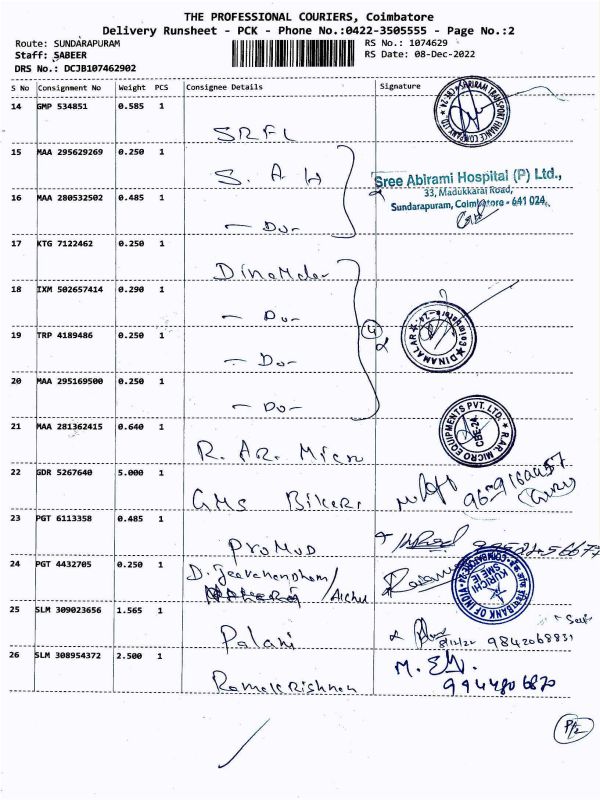 THE PROFESSIONAL COURIERS, Coimbatore
Delivery Runsheet - PCK - Phone No.:0422-3505555 - Page No.:2
Route: SUNDARAPURAM RS No.: 1074629
Staff: SABEER RS Date: 08-Dec-2022
DRS No.: DCJB107462902
S No Consignment No Weight PCS Consignee Details Signature
14 GMP 534851 0.585 1
SRFL
SHRIRAM TRANSPORT FINANCE COMPANY LTD.
15 MAA 295629269 0.250 1
S. A H
Sree Abirami Hospital (P) Ltd.,
33, Madukkarai Road,
Sundarapuram, Coimbatore - 641 024.
16 MAA 280532502 0.485 1
- Do -
17 KTG 7122462 0.250 1
DinaMalar
18 IXM 502657414 0.290 1
- Do -
4
DINAMALAR
19 TRP 4189486 0.250 1
- Do -
20 MAA 295169500 0.250 1
- Do -
21 MAA 281362415 0.640 1
R. AR. Micro
R.A.R. MICRO EQUIPMENTS PVT. LTD.
CBE-24.
22 GDR 5267640 5.000 1
GMS Bikers
23 PGT 6113358 0.485 1
PROMUD
24 PGT 4432705 0.250 1
BANK OF INDIA
KURICHI
SME
25 SLM 309023656 1.565 1
Palani
8/12/22 9842068831
26 SLM 308954372 2.500 1
Ramakrishnan
9944806820
P/2